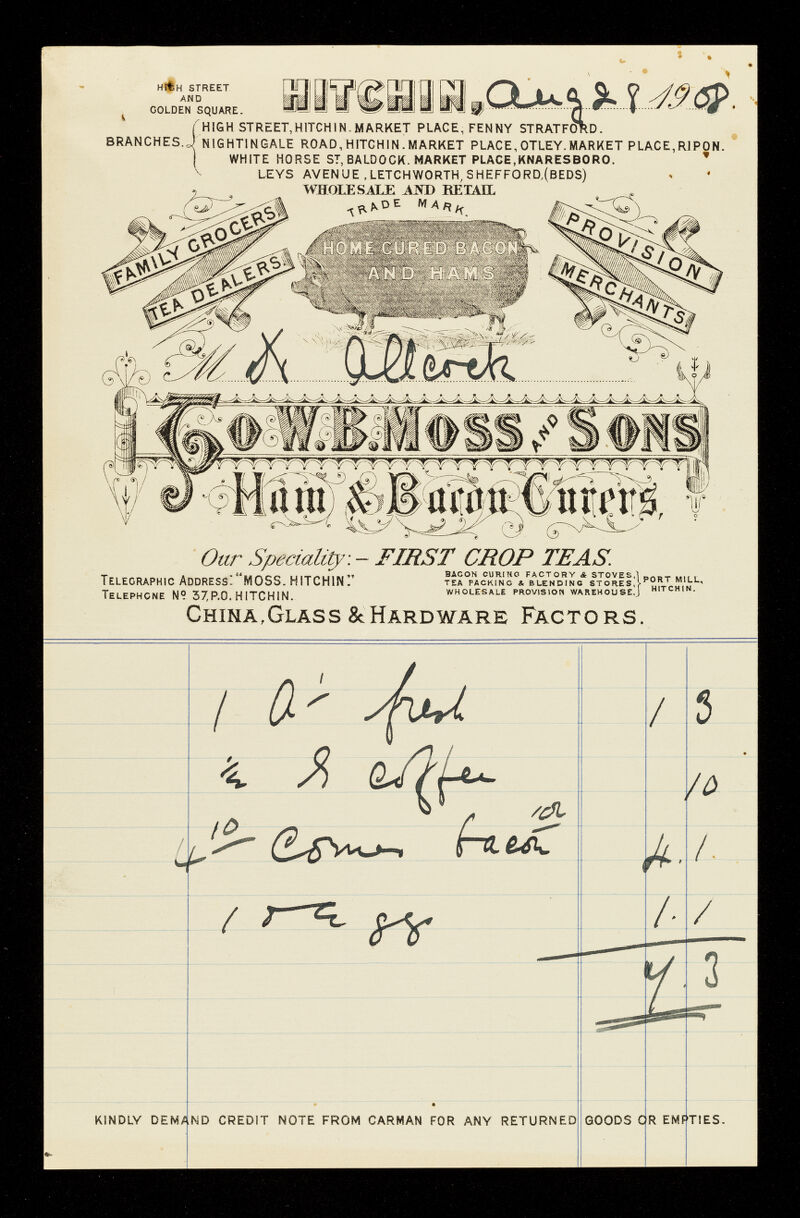 HIGH STREET
AND
GOLDEN SQUARE.
HITCHIN, Aug 28 1908.
BRANCHES.
HIGH STREET, HITCHIN. MARKET PLACE, FENNY STRATFORD.
NIGHTINGALE ROAD, HITCHIN. MARKET PLACE, OTLEY. MARKET PLACE, RIPON.
WHITE HORSE ST, BALDOCK. MARKET PLACE, KNARESBORO.
LEYS AVENUE, LETCHWORTH, SHEFFORD.(BEDS)
WHOLESALE AND RETAIL
TRADE MARK.
FAMILY GROCERS
TEA DEALERS.
HOME CURED BACON
AND HAMS
PROVISION
MERCHANTS.
M Dr Allcock
To W. B. MOSS AND SONS
Ham & Bacon Curers,
Our Speciality:- FIRST CROP TEAS.
TELEGRAPHIC ADDRESS: "MOSS. HITCHIN."
TELEPHONE No 37, P.O. HITCHIN.
BACON CURING FACTORY & STOVES.
TEA PACKING & BLENDING STORES.
WHOLESALE PROVISION WAREHOUSE.
PORT MILL,
HITCHIN.
CHINA, GLASS & HARDWARE FACTORS.
1 fresh 1 3
½ coffee 10
4 10 Corner bacon 10d 4. 1
1 Eggs 1. 1
7. 3
KINDLY DEMAND CREDIT NOTE FROM CARMAN FOR ANY RETURNED GOODS OR EMPTIES.